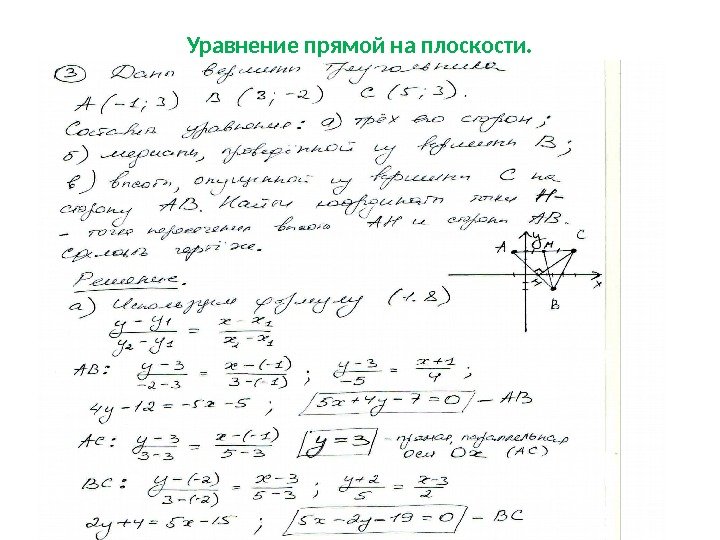 Уравнение прямой на плоскости.
③ Даны вершины треугольника
A (-1; 3) B (3; -2) C (5; 3).
Составить уравнение: а) трёх его сторон;
б) медианы, проведённой из вершины B;
в) высоты, опущенной из вершины C на
сторону AB. Найти координаты точки H-
- точки пересечения высоты AH и стороны AB.
Сделать чертёж.
A y M C
H x
B
Решение.
а) Используем формулу (1.8)
y - y1 / y2 - y1 = x - x1 / x2 - x1
AB: y - 3 / -2 - 3 = x - (-1) / 3 - (-1) ; y - 3 / -5 = x + 1 / 4 ;
4y - 12 = -5x - 5 ; 5x + 4y - 7 = 0 - AB
AC: y - 3 / 3 - 3 = x - (-1) / 5 - 3 y = 3 - прямая, параллельная оси Ox (AC)
BC: y - (-2) / 3 - (-2) = x - 3 / 5 - 3 ; y + 2 / 5 = x - 3 / 2
2y + 4 = 5x - 15 ; 5x - 2y - 19 = 0 - BC